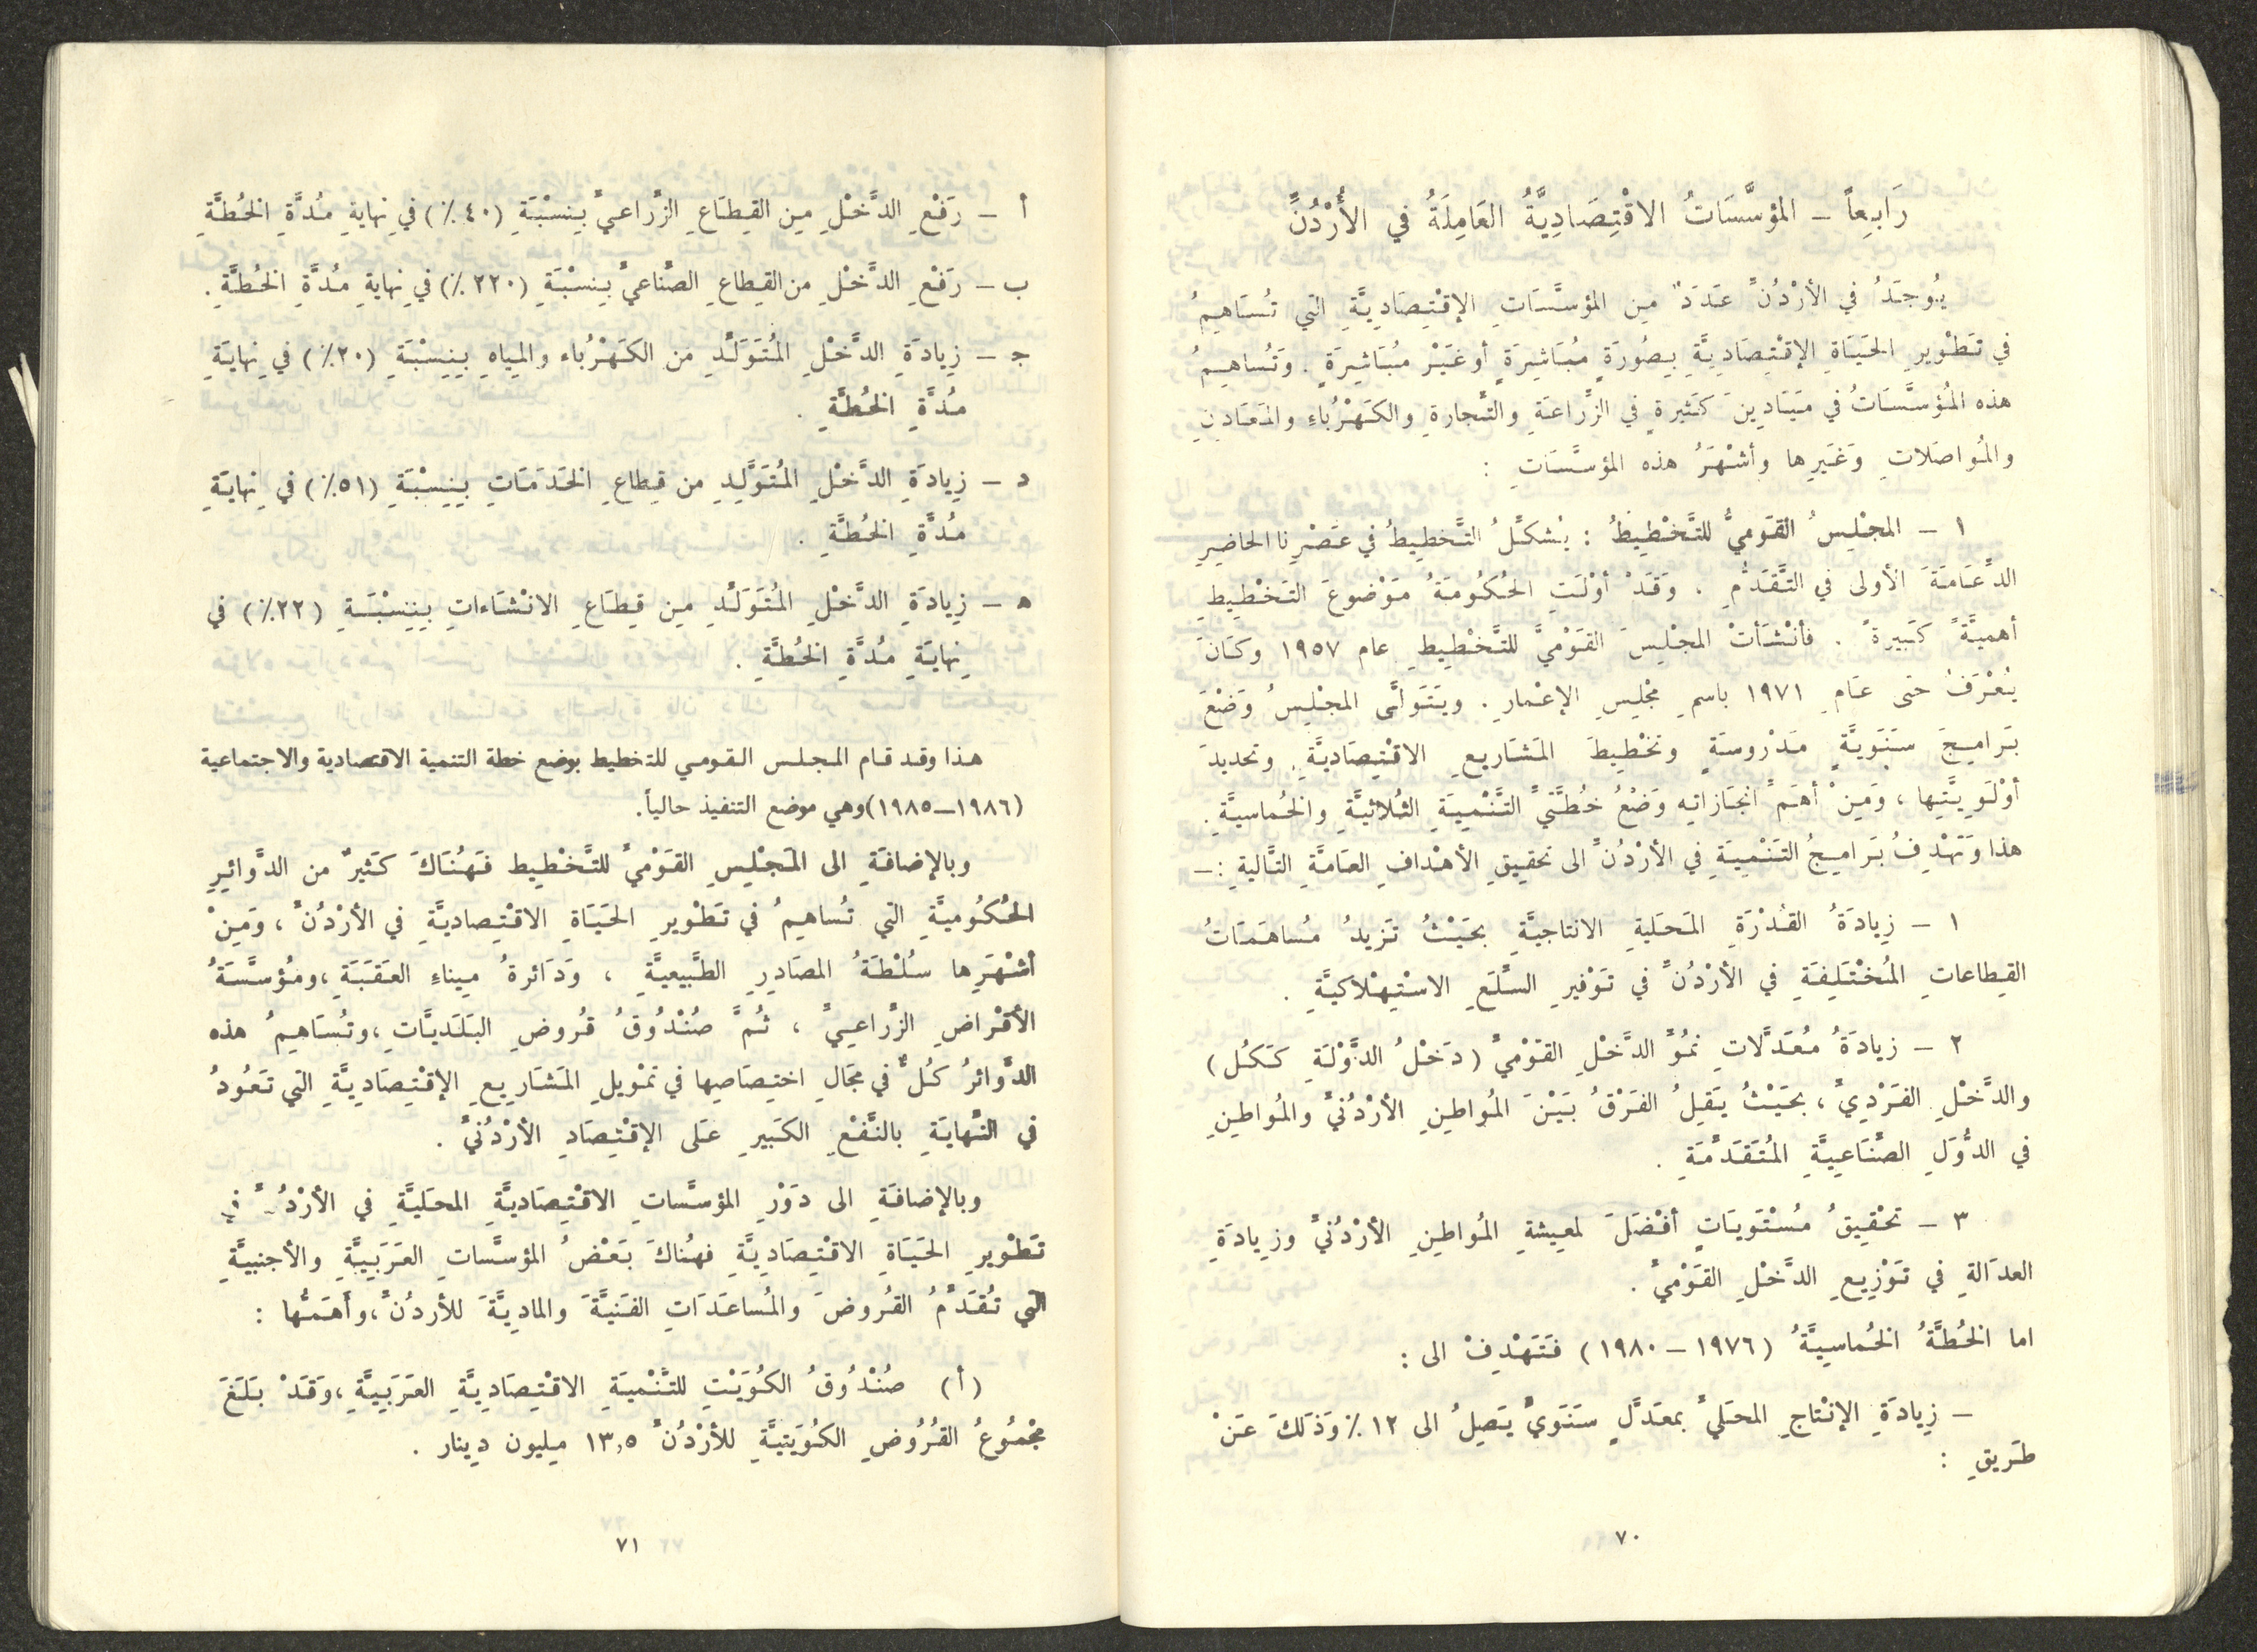 رَابِعاً – المؤسَّسَاتُ الاقْتِصَادِيَّةُ العَامِلَةُ في الأُرْدُنِّ
يُوجَدُ في الأرْدُنِّ عَدَدٌ مِن المؤسَّسَاتِ الإقْتِصَادِيَّةِ التي تُسَاهِمُ
في تَطْويرِ الحَيَاةِ الإقْتِصَادِيَّةِ بِصُورَةٍ مُبَاشِرَةٍ أو غَيْر مُبَاشِرَةٍ . وَتُساهِمُ
هذه المُؤسَّسَاتُ في مَيَادِينَ كَثيرةٍ في الزِّراعَةِ والتِّجارةِ والكَهْرُباءِ والمَعَادِنِ
والمُواصَلاتِ وَغَيرِها وأشْهَرُ هذه المؤسَّسَاتِ :
١ – المجْلِسُ القَوميُّ للتَّخْطِيطُ : يُشكِّلُ التَّخطِيطُ في عَصْرِنا الحاضِرِ
الدِّعَامَةَ الأولى في التَّقَدُّمِ . وَقَدْ أوْلَتِ الحُكُومَةُ مَوْضُوعَ التَخْطِيطِ
أهميَّةً كَبيرةً . فأنْشَأتْ المجْلِسَ القَوْميَّ للتَّخْطِيطِ عام ١٩٥٧ وكَانَ
يُعْرَفُ حتى عَامِ ١٩٧١ باسمِ مجْلِسِ الإعْمارِ . ويَتَوَلَّى المجْلِسُ وَضْعَ
بَرامِجَ سَنَوِيَّةٍ مَدْروسَةٍ وتخْطِيطَ المَشَاريعِ الاقْتِصَاديَّةِ وتحديدَ
أوْلَويَّتِها ، وَمِنْ أهَمِّ انجَازاتِه وَضْعُ خُطَّتَيْ التَّنْمِيَةِ الثُلاثيَّةِ والخُماسيَّةِ .
هذا وَتَهْدِفُ بَرَامِجُ التَنْمِيَةِ في الأرْدُنِّ الى تحقِيقِ الأهْدافِ العَامَّةِ التَّاليةِ :–
١ – زِيادَةُ القُدْرَةِ المَحَليةِ الانتاجيَّةِ بحَيْثُ تَزيدُ مُساهَمَاتُ
القِطاعاتِ المُخْتَلِفَةِ في الأرْدُنِّ في تَوْفيرِ السِّلَعِ الاسْتِهْلاكيَّةِ .
٢ – زيادَةُ مُعَدَّلاتِ نمُوِّ الدَّخْلِ القَوْميِّ (دَخْلُ الدَّوْلَةِ كَكُل)
والدَّخْلِ الفَرْدِيِّ ، بحَيْثُ يَقِلُ الفَرْقُ بَيْنَ المُواطِنِ الأرْدُنيِّ والمُواطِنِ
في الدُّوَلِ الصِّنَاعِيَّةِ المُتَقَدِّمَةِ .
٣ – تحْقِيقُ مُسْتَويَاتٍ أفْضَلَ لمعِيشةِ المُواطِنِ الأرْدُنيِّ وزِيادَةِ
العدَالةِ في تَوْزِيعِ الدَّخْلِ القَوْميِّ .
اما الخُطَّةُ الخُماسِيَّةُ (١٩٧٦ – ١٩٨٠) فَتَهْدِفْ الى :
– زِيادَةِ الإنْتاجِ المحَليِّ بمعَدَّلٍ سَنَويٍّ يَصِلُ الى ١٢ ٪ وَذَلكَ عَنْ
طَريقِ :
٧٠
أ – رَفْعِ الدَّخْلِ مِن القِطَاعِ الزِّراعيِّ بِنسْبَةِ (٤٠ ٪) في نِهايةِ مُدَّةِ الخُطَّةِ
ب – رَفْعِ الدَّخْلِ من القِطاعِ الصِّناعيِّ بِنسْبَةِ (٢٢٠ ٪) في نِهايةِ مُدَّةِ الخُطَّةِ .
جـ – زِيادَةِ الدَّخْلِ المُتَوَلِّدِ مَن الكَهْرُباء والمِياهِ بِنِسْبَةِ (٢٠٪) في نِهايَةِ
مُدَّةِ الخُطَّةِ .
د – زِيادَةِ الدَّخْلِ المُتَوَلِّدِ من قِطاعِ الخَدَمَاتِ بِنِسْبَةِ (٥١٪) في نِهايَةِ
مُدَّةِ الخُطَّةِ .
ه – زِيادَةِ الدَّخْلِ المُتَوَلِّدِ مِن قِطَاعِ الانْشَاءاتِ بِنِسْبَةِ (٢٢٪) في
نِهايَةِ مُدَّةِ الخُطَّةِ .
هذا وقد قام المجلس القومي للتخطيط بوضع خطة التنمية الاقتصادية والاجتماعية
(١٩٨٦–١٩٨٥) وهي موضع التنفيذ حالياً.
وبالإضافَةِ الى المَجْلِسِ القَوْميِّ للتَّخْطِيط فَهُنَاكَ كَثيرٌ من الدَّوائِرِ
الحُكُوميَّةِ التي تُساهِمُ في تَطْويرِ الحَيَاةِ الاقْتِصاديَّةِ في الأرْدُنِّ ، وَمِنْ
أشْهَرِها سُلْطَةُ المصَادِرِ الطَّبيعيَّةِ ، وَدَائرةُ مِيناءِ العَقَبَةِ ، ومُؤسَّسَةُ
الأقْرَاضِ الزِّراعِيِّ ، ثُمَّ صُنْدُوقُ قُروضِ البَلَديَّاتِ ، وتُسَاهِمُ هذه
الدَّوائرُ كُلٌّ في مجَالِ اختِصَاصِها في تمْويلِ المَشَارِيعِ الإقْتِصَادِيَّةِ التي تَعُودُ
في النِّهايَةِ بالنَّفْعِ الكَبيرِ عَلى الإقْتِصَادِ الأرْدُنيِّ .
وبالإضافَةِ الى دَوْرِ المؤسَّساتِ الاقْتِصَاديَّةِ المحَليَّةِ في الأرْدُنِّ في
تَطْويرِ الحَيَاةِ الاقْتِصَادِيَّةِ فهُناكَ بَعْضُ المؤسَّساتِ العَرَبِيَّةِ والأجنبيَّةِ
التي تُقَدِّمُ القُروضَ والمُساعَدَاتِ الفَنيَّةَ والمادِيَّةَ للأردُنِّ ، وأَهَمُّها :
(أ) صُنْدُوقُ الكُوَيْتِ للتَّنْميَةِ الاقْتِصَادِيَّةِ العَرَبِيَّةِ ، وَقَدْ بَلَغَ
مجْمُوعُ القُرُوضِ الكُوَيتيَّةِ للأرْدُنِّ ١٣,٥ مِليون دِينار .
٧١